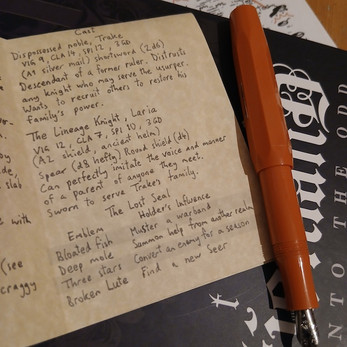 Cast
Dispossessed noble, Trake
VIG 9, CLA 14, SPI 12, 3GD
(A1 silver mail) shortsword (2d6)
Descendant of a former ruler. Distrusts
any knight who may serve the usurper.
Wants to recruit others to restore his
family's power.
The Lineage Knight, Laria
VIG 12, CLA 7, SPI 10, 3GD
(A2 shield, ancient helm)
Spear (d8 hefty) Round shield (d4)
Can perfectly imitate the voice and manner
of a parent of anyone they meet.
Sworn to serve Trakes family.
The Lost Seal
Emblem Holder's Influence
Bloated fish Muster a warband
Deep mole Summon help from another realm
Three stars Convert an enemy for a season
Broken Lute Find a new seer
with
(see
craggy
INTO THE ODD